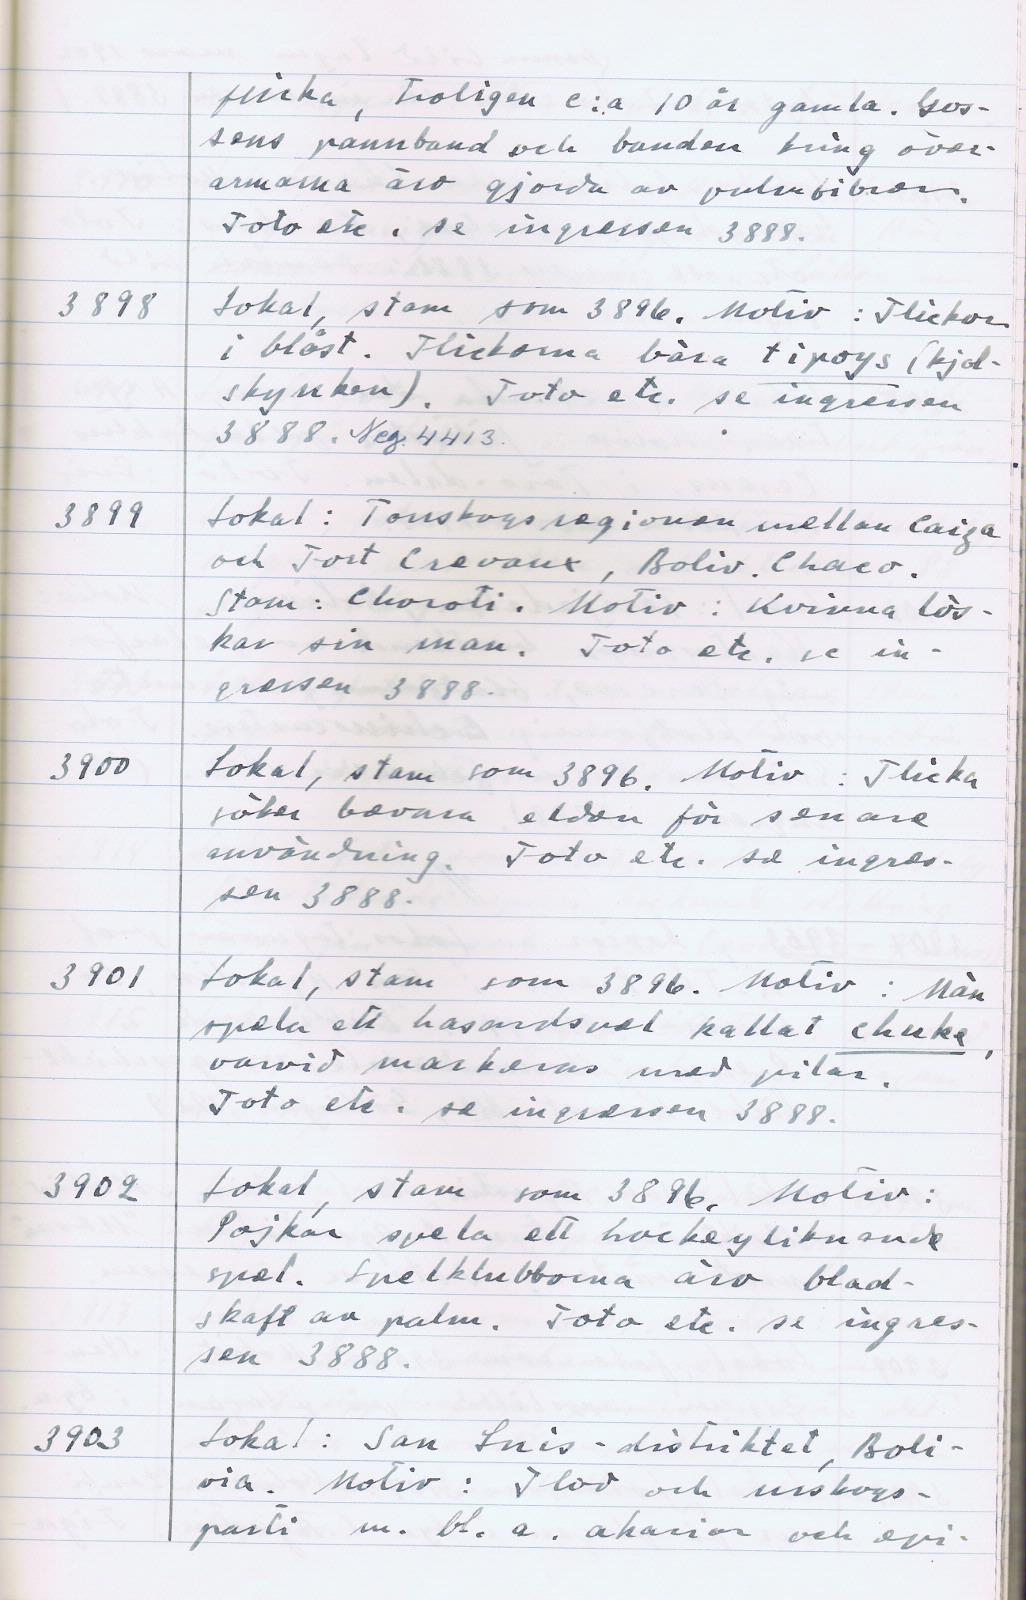 flicka, troligen c:a 10 år gamla. Gos-
sens pannband och banden kring över-
armarna äro gjorda av palmfibrer.
Foto etc. se ingressen 3888.
3898 Lokal, stam som 3896. Motiv: Flickor
i blåst. Flickorna bära tipoys (kjol-
skynken). Foto etc. se ingressen
3888. Neg. 4413.
3899 Lokal: Torrskogsregionen mellan Caiza
och Fort Crevaux, Boliv. Chaco.
Stam: Choroti. Motiv: Kvinna lös-
kar sin man. Foto etc. se in-
gressen 3888.
3900 Lokal, stam som 3896. Motiv: Flicka
söker bevara elden för senare
användning. Foto etc. se ingres-
sen 3888.
3901 Lokal, stam som 3896. Motiv: Män
spela ett hasardspel kallat chuke,
varvid markeras med pilar.
Foto etc. se ingressen 3888.
3902 Lokal, stam som 3896. Motiv:
Pojkar spela ett hockeyliknande
spel. Spelklubborna äro blad-
skaft av palm. Foto etc. se ingres-
sen 3888.
3903 Lokal: San Luis-distriktet, Boli-
via. Motiv: Flod och urskogs-
parti m. bl. a. akasior och epi-